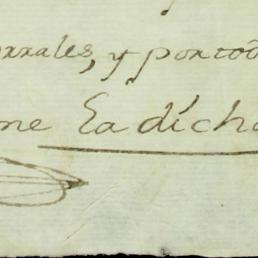 orrales, y portod
me Ladicha